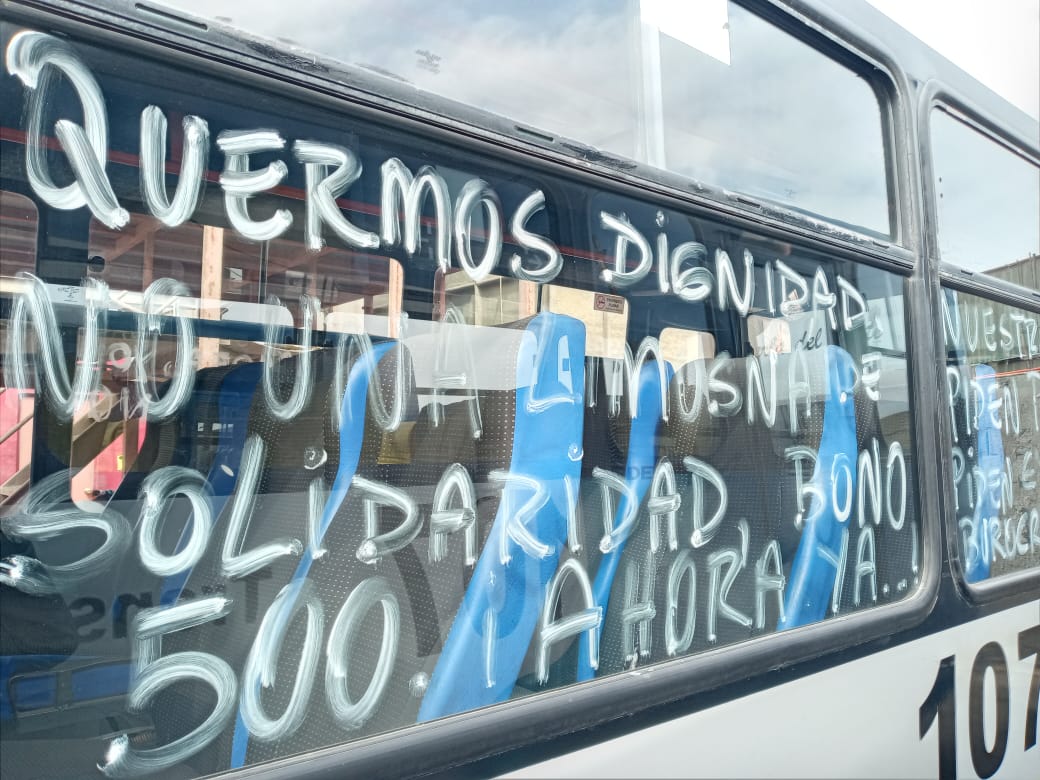 QUERMOS DIGNIDAD
NO UNA LIMOSNA DE
SOLIDARIDAD, BONO
500. ¡AHORA YA...!
NUESTR
PIDEN
PIDEN
BUROCR
107
del